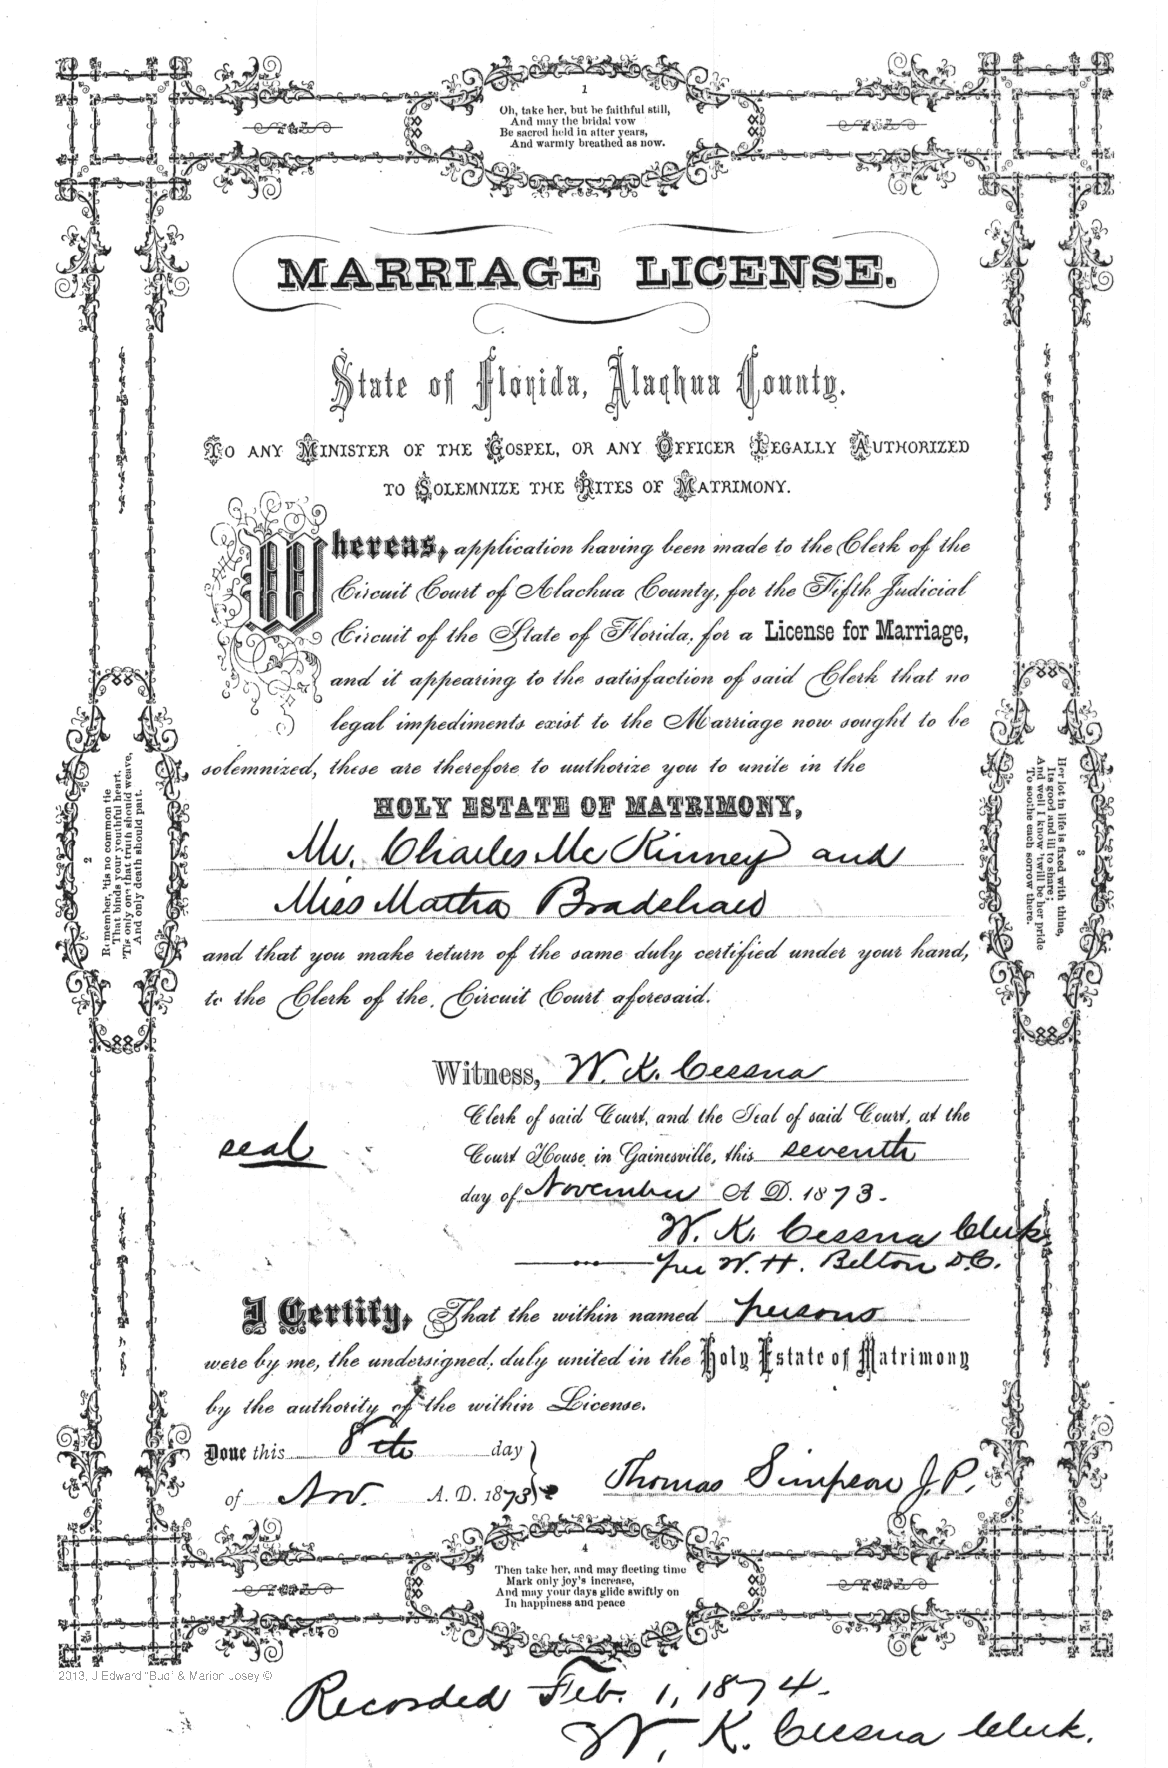 1
Oh, take her, but be faithful still,
And may the bridal vow
Be sacred held in after years,
And warmly breathed as now.
MARRIAGE LICENSE.
State of Florida, Alachua County.
TO ANY MINISTER OF THE GOSPEL, OR ANY OFFICER LEGALLY AUTHORIZED
TO SOLEMNIZE THE RITES OF MATRIMONY.
Whereas, application having been made to the Clerk of the
Circuit Court of Alachua County, for the Fifth Judicial
Circuit of the State of Florida, for a License for Marriage,
and it appearing to the satisfaction of said Clerk that no
legal impediments exist to the Marriage now sought to be
solemnized, these are therefore to authorize you to unite in the
HOLY ESTATE OF MATRIMONY,
Mr. Charles McKinney and
Miss Martha Bradshaw
and that you make return of the same duly certified under your hand,
to the Clerk of the Circuit Court aforesaid.
2
Remember, 'tis no common tie
That binds your youthful heart,
'Tis only one that truth should weave,
And only death should part.
3
Her lot in life is fixed with thine,
Its good and ill to share;
And well I know 'twill be her pride
To soothe each sorrow there.
Witness, W. K. Cessna
Clerk of said Court, and the Seal of said Court, at the
seal
Court House in Gainesville, this seventh
day of November A D. 1873.
W. K. Cessna Clerk
per W. H. Belton D.C.
I Certify, That the within named persons
were by me, the undersigned, duly united in the Holy Estate of Matrimony
by the authority of the within License.
Done this 8th day
of Nov. A. D. 1873
Thomas Simpson J.P.
4
Then take her, and may fleeting time
Mark only joy's increase,
And may your days glide swiftly on
In happiness and peace
2013, J Edward "Bud" & Marion Josey ©
Recorded Feb. 1, 1874.
W. K. Cessna Clerk.